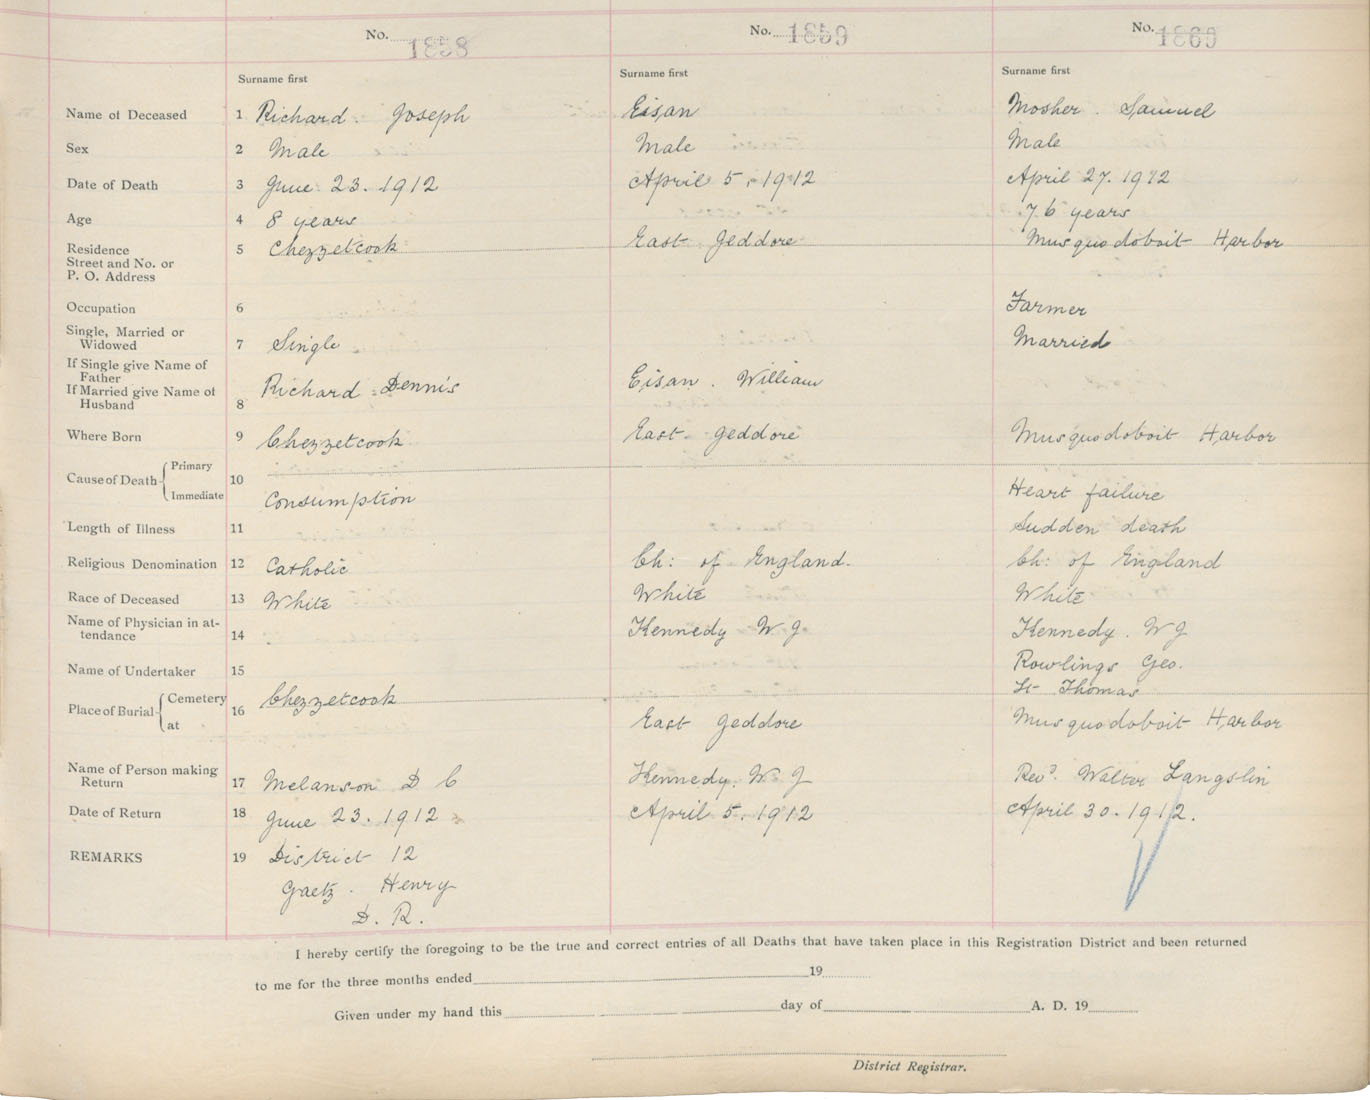 No. 1858 No. 1859 No. 1860
Surname first Surname first Surname first
Name of Deceased 1 Richard. Joseph Eisan Mosher. Samuel
Sex 2 Male Male Male
Date of Death 3 June 23. 1912 April 5, 1912 April 27. 1912
Age 4 8 years 76 years
Residence 5 Chezzetcook East Jeddore Musquodoboit Harbor
Street and No. or
P. O. Address
Occupation 6 Farmer
Single, Married or
Widowed 7 Single Married
If Single give Name of
Father
If Married give Name of
Husband 8 Richard Dennis Eisan. William
Where Born 9 Chezzetcook East Jeddore Musquodoboit Harbor
Cause of Death Primary 10
Immediate Consumption Heart failure
Length of Illness 11 Sudden death
Religious Denomination 12 Catholic Ch: of England. Ch: of England
Race of Deceased 13 White White White
Name of Physician in at-
tendance 14 Kennedy W J Kennedy. W J
Name of Undertaker 15 Rowlings Geo.
Place of Burial Cemetery 16 Chezzetcook St Thomas
at East Jeddore Musquodoboit Harbor
Name of Person making
Return 17 Melanson D C Kennedy. W J Revd. Walter Langslin
Date of Return 18 June 23. 1912 April 5. 1912 April 30. 1912.
REMARKS 19 District 12
Gaetz. Henry
D. R.
I hereby certify the foregoing to be the true and correct entries of all Deaths that have taken place in this Registration District and been returned
to me for the three months ended 19
Given under my hand this day of A. D. 19
District Registrar.